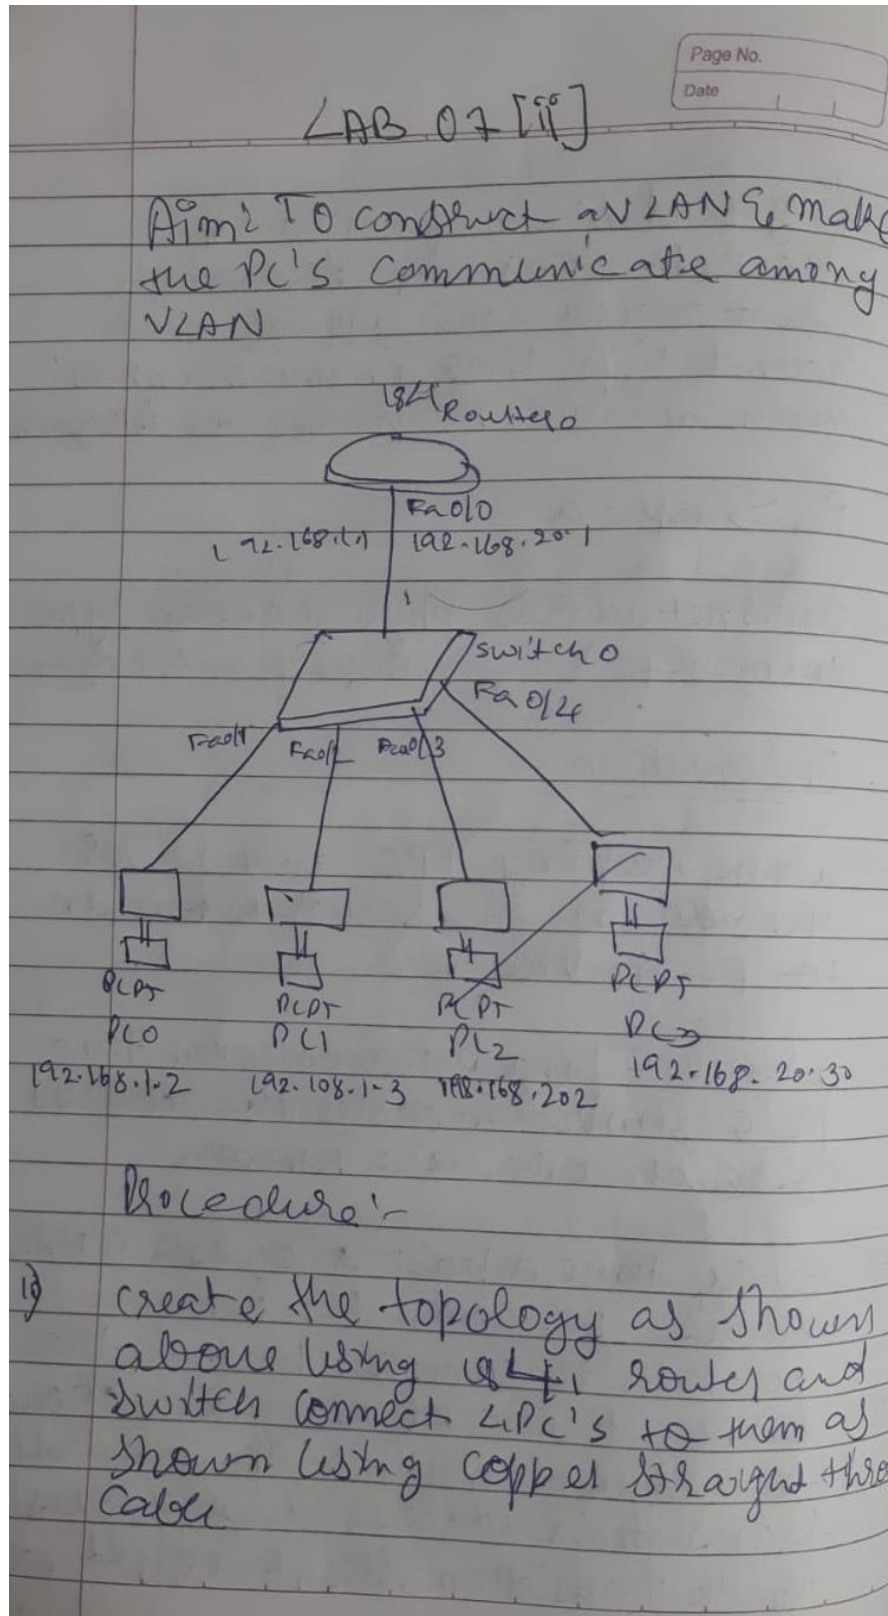 Page No.
Date
LAB 07 [ii]
Aim: To construct a VLAN & make
the PC's communicate among
VLAN
1841 Router0
Fa0/0
192.168.1.1 192.168.20.1
switch 0
Fa 0/4
Fa0/1 Fa0/2 Fa0/3
PCPT PCPT PCPT PCPT
PC0 PC1 PC2 PC3
192.168.1.2 192.108.1.3 198.168.202 192.168.20.30
Procedure:-
1) create the topology as shown
above using 1841 router and
switch connect 4PC's to them as
shown using copper straight thro
Cable